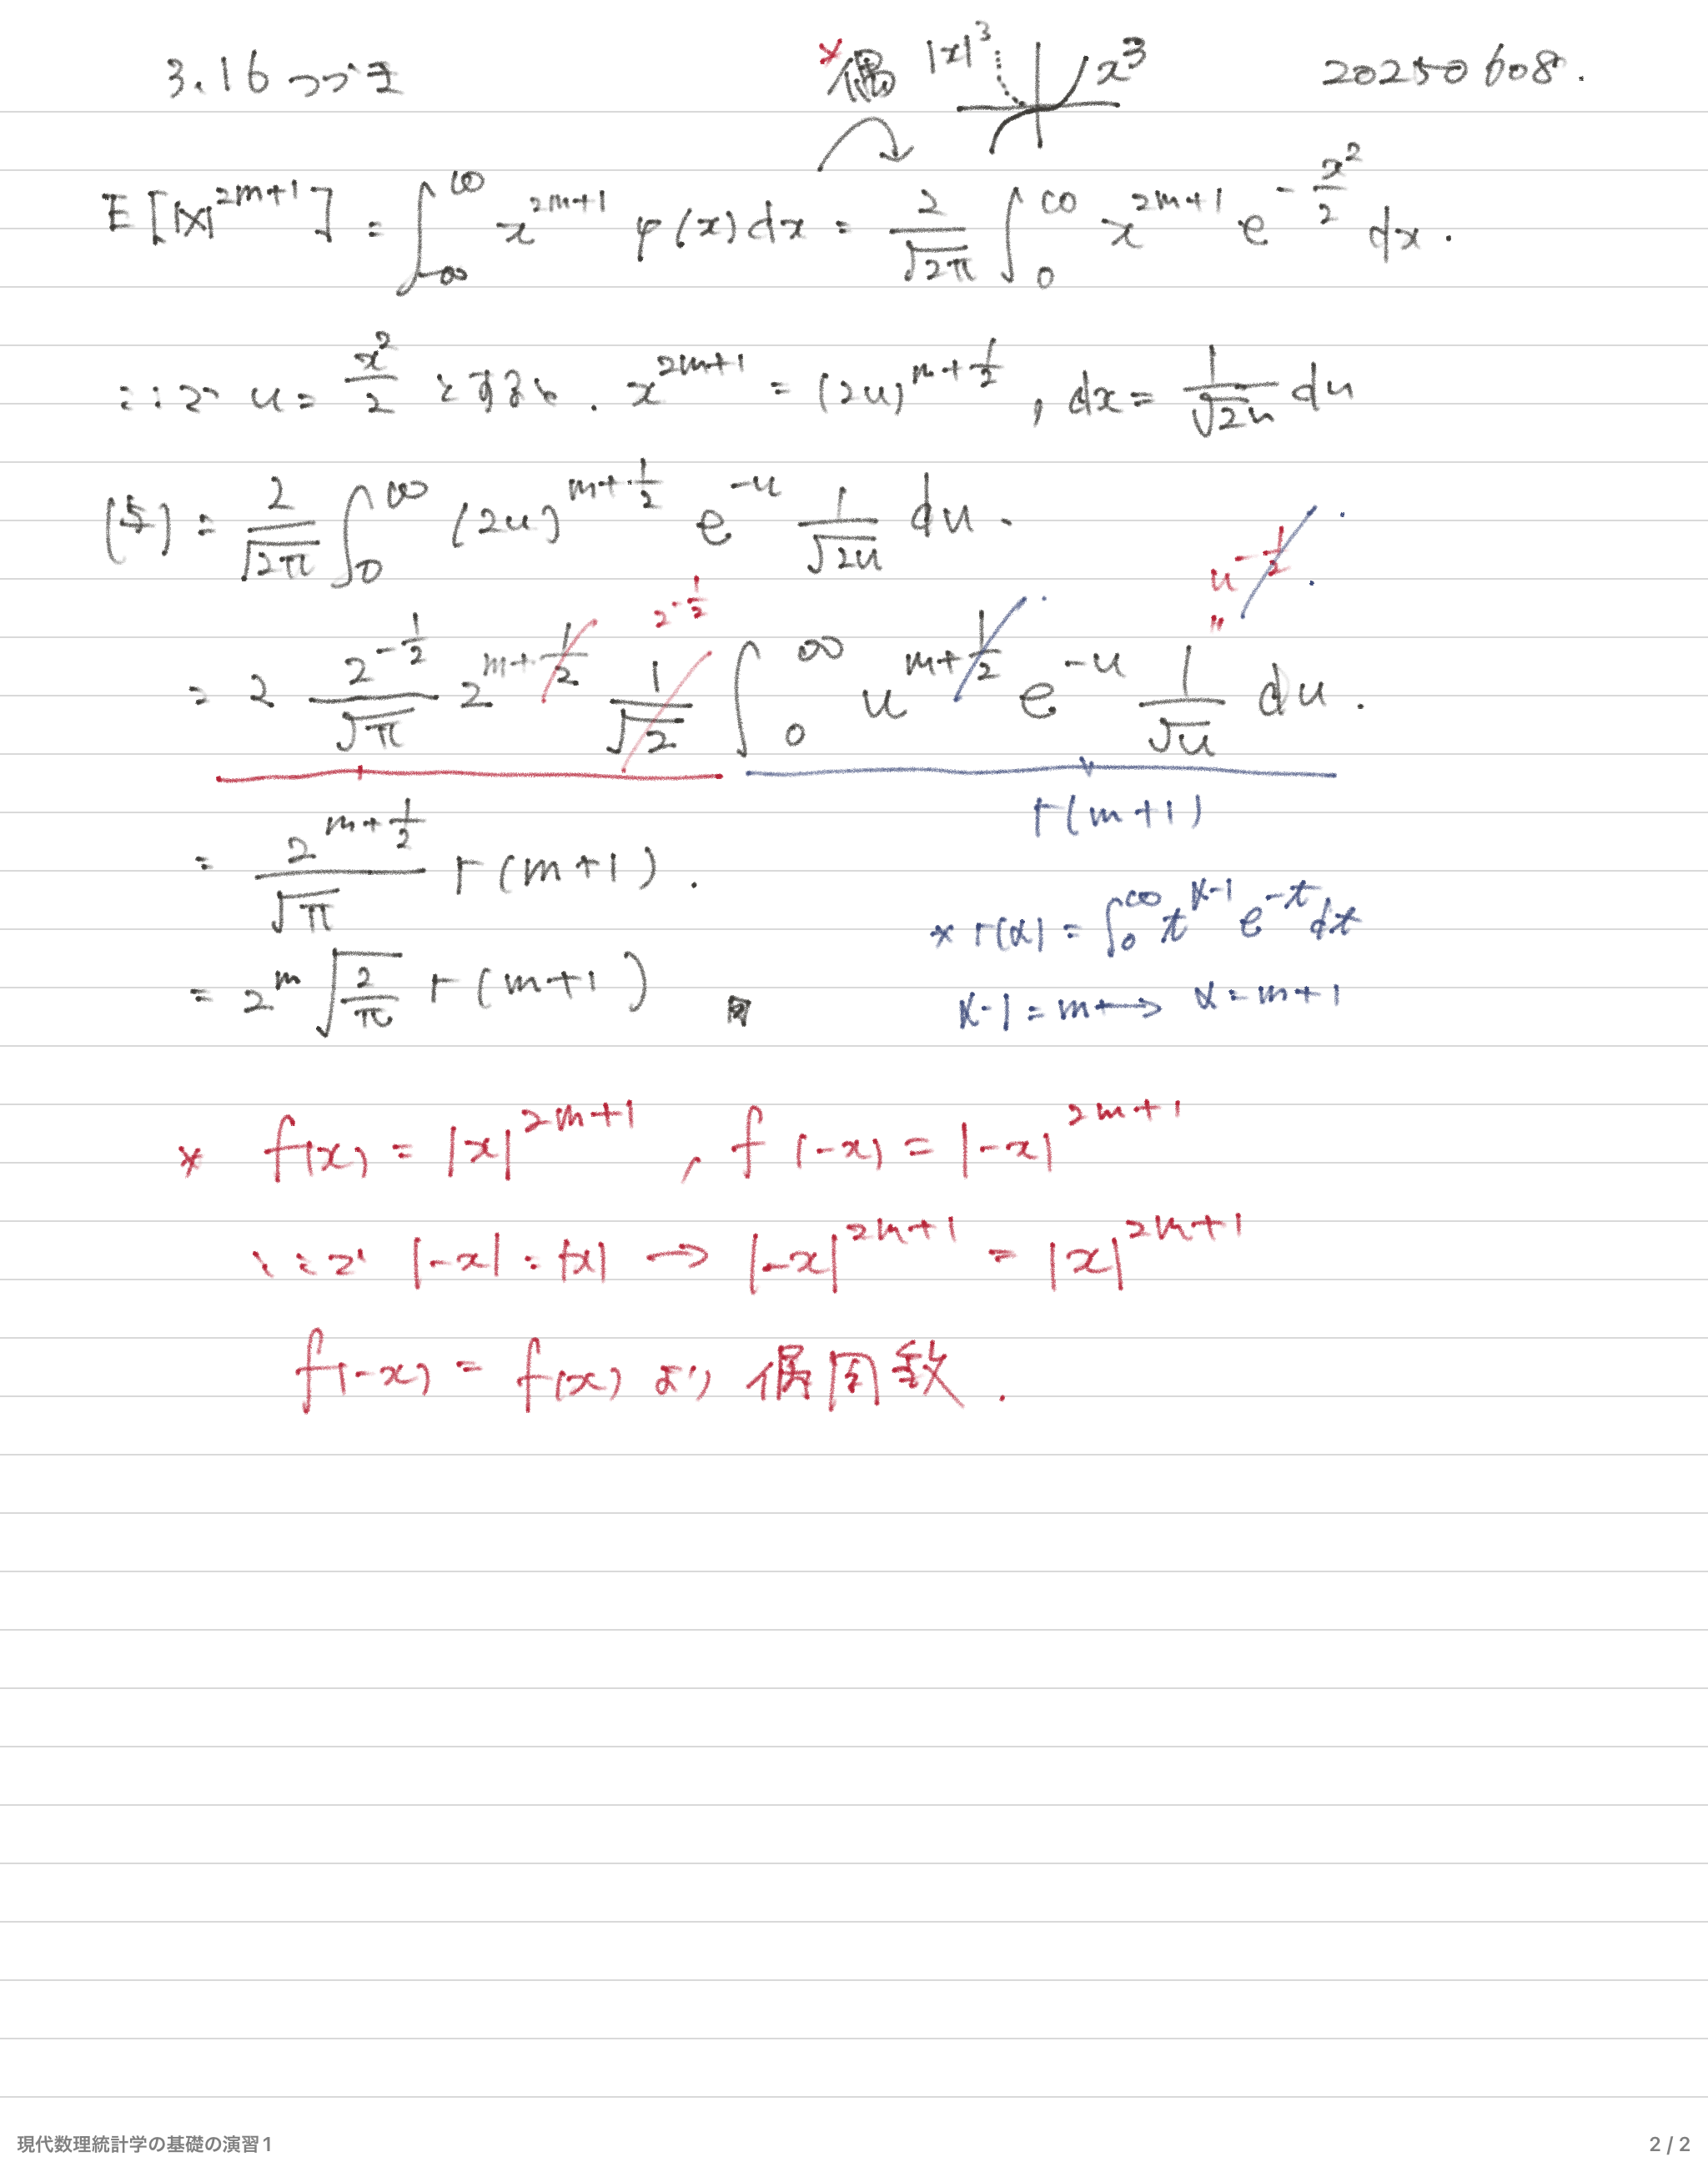 3.16 つづき
*偶 |x|³ x³
20250608.
E[|X|^{2m+1}] = ∫_{-∞}^{∞} x^{2m+1} φ(x)dx = 2/√2π ∫_0^∞ x^{2m+1} e^{-x²/2} dx.
ここで u = x²/2 とすると. x^{2m+1} = (2u)^{m+1/2}, dx = 1/√2u du
(与) = 2/√2π ∫_0^∞ (2u)^{m+1/2} e^{-u} 1/√2u du.
2^{-1/2}
u^{-1/2}
〃
= 2 2^{-1/2}/√π 2^{m+1/2} 1/√2 ∫_0^∞ u^{m+1/2} e^{-u} 1/√u du.
Γ(m+1)
= 2^{m+1/2}/√π Γ(m+1).
* Γ(α) = ∫_0^∞ t^{α-1} e^{-t} dt
= 2^m √(2/π) Γ(m+1)
α-1 = m ⟼ α = m+1
* f(x) = |x|^{2m+1}, f(-x) = |-x|^{2m+1}
ここで |-x| = |x| → |-x|^{2m+1} = |x|^{2m+1}
f(-x) = f(x) より 偶関数.
現代数理統計学の基礎の演習1
2 / 2